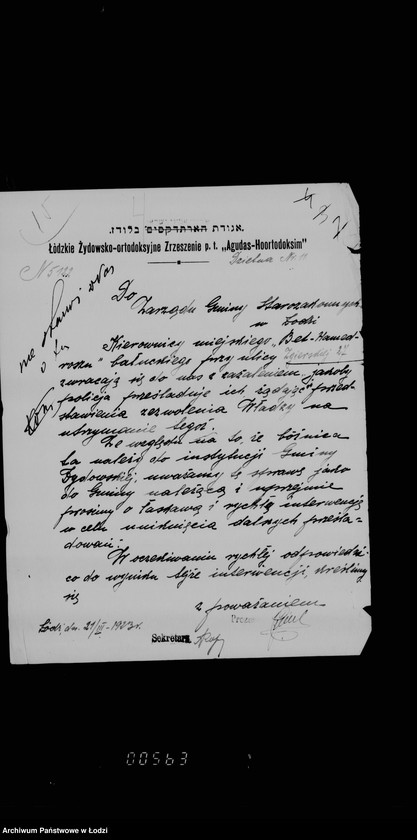 15
אגודת הארתדקסים בלודז.
Łódzkie Żydowsko-ortodoksyjne Zrzeszenie p. f. „Agudas-Hoortodoksim"
Dzielna No
No
Do
Zarządu Gminy Starozakonnych
w Łodzi
Kierownicy miejskiego „Bet-Hamed-
rosu" bałuckiego przy ulicy Zgierskiej
zwracają się do nas z zażaleniem, jakoby
policja prześladuje ich żądając przed-
stawienia zezwolenia Władzy na
utrzymanie tegoż.
Ze względu na to, że bóżnica
ta należy do instytucji Gminy
Żydowskiej, uważamy tę sprawę jako
do Gminy należącą i uprzejmie
prosimy o łaskawą i rychłą interwencję
w celu uniknięcia dalszych prześla-
dowań.
W oczekiwaniu rychłej odpowiedzi
co do wyniku tejże interwencji, kreślimy
się
z poważaniem
Łódź, dn. 21/III-1923 r.
Sekretarz
00563
Archiwum Państwowe w Łodzi